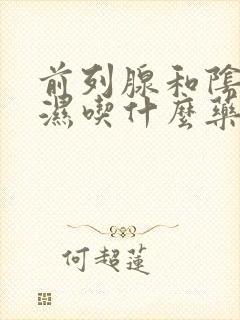 前列腺和陰
濕喫什麼藥
何超蓮